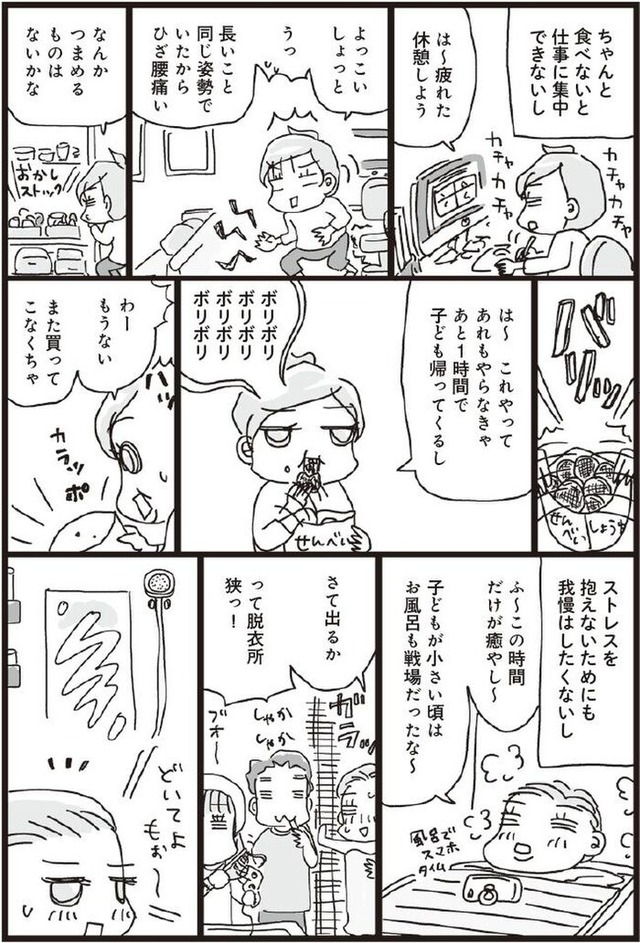 ちゃんと
食べないと
仕事に集中
できないし
は〜疲れた
休憩しよう
カチャカチャ
カチャカチャ
よっこい
しょっと
うっ
長いこと
同じ姿勢で
いたから
ひざ腰痛い
なんか
つまめる
ものは
ないかな
おかし
ストック
バリッ
せんべい
しょうゆ
は〜 これやって
あれもやらなきゃ
あと1時間で
子ども帰ってくるし
ボリボリ
ボリボリ
ボリボリ
ボリボリ
せんべい
わー
もうない
また買って
こなくちゃ
ハッ
カラッポ
ストレスを
抱えないためにも
我慢はしたくないし
ふ〜この時間
だけが癒やし〜
子どもが小さい頃は
お風呂も戦場だったな〜
風呂で
スマホ
タイム
さて出るか
って脱衣所
狭っ!
ガラッ
しゃか
しゃか
ブオー
どいてよ
もぉ〜